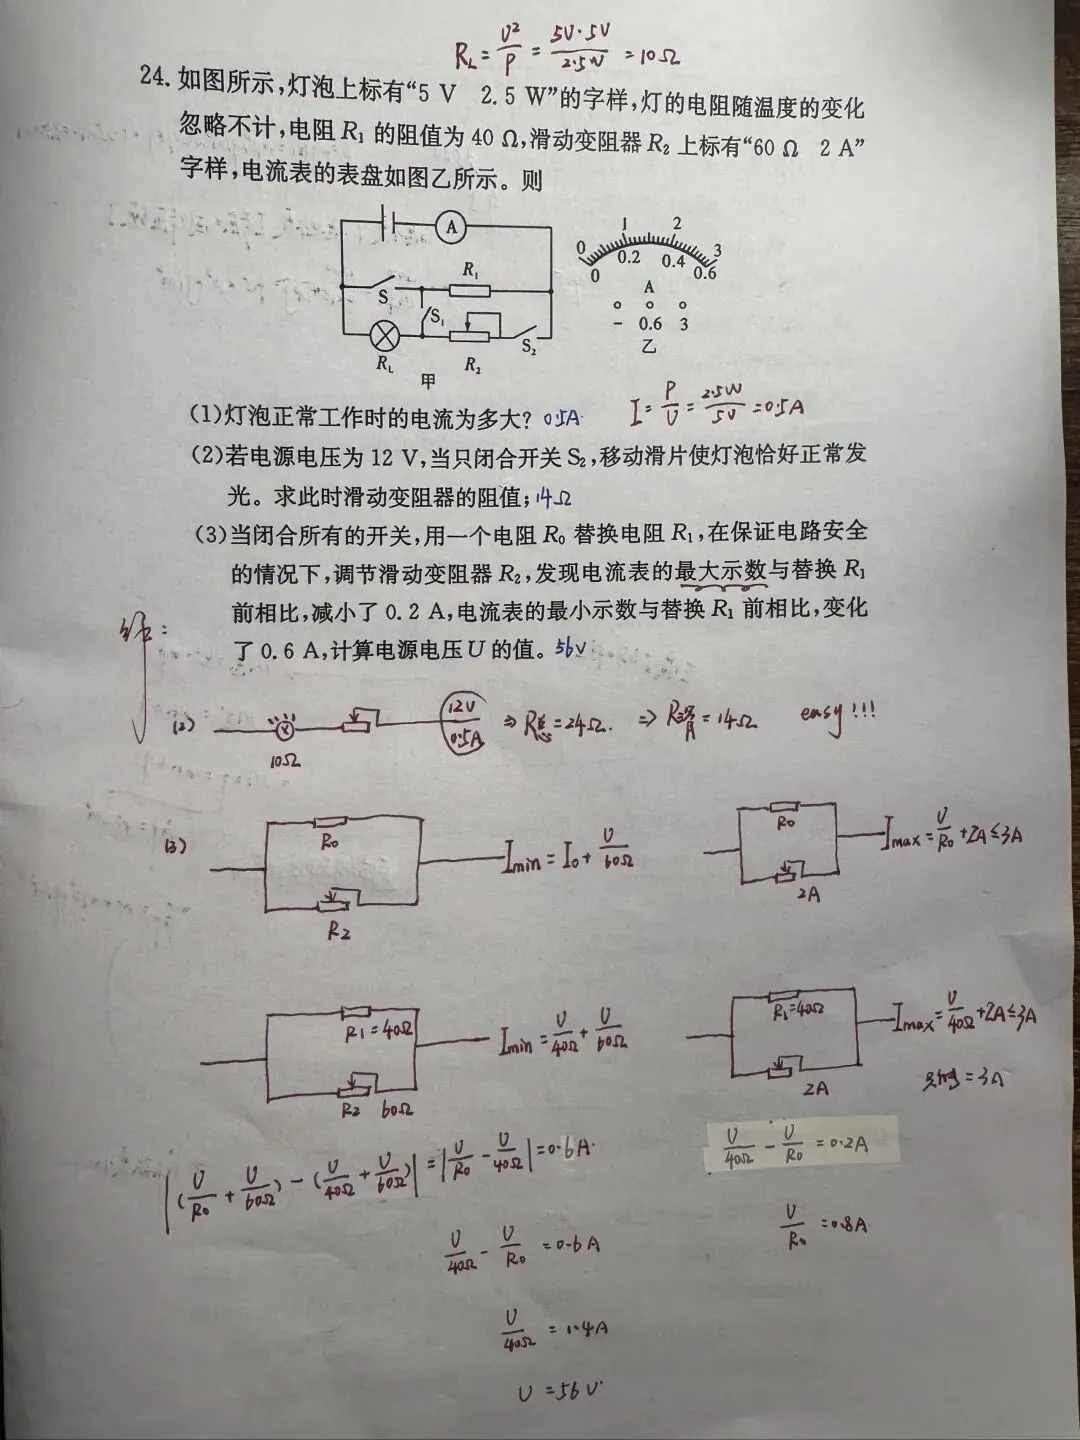 R_L = U²/P = 5V·5V/2.5W = 10Ω
24. 如图所示,灯泡上标有“5 V 2.5 W”的字样,灯的电阻随温度的变化
忽略不计,电阻 R₁ 的阻值为 40 Ω,滑动变阻器 R₂ 上标有“60 Ω 2 A”
字样,电流表的表盘如图乙所示。则
A
S
R₁
S₁
R_L
R₂
S₂
甲
0 1 2 3
0 0.2 0.4 0.6
A
- 0.6 3
乙
(1)灯泡正常工作时的电流为多大? 0.5A
I = P/U = 2.5W/5V = 0.5A
(2)若电源电压为 12 V,当只闭合开关 S₂,移动滑片使灯泡恰好正常发
光。求此时滑动变阻器的阻值; 14Ω
(3)当闭合所有的开关,用一个电阻 R₀ 替换电阻 R₁,在保证电路安全
的情况下,调节滑动变阻器 R₂,发现电流表的最大示数与替换 R₁
前相比,减小了 0.2 A,电流表的最小示数与替换 R₁ 前相比,变化
了 0.6 A,计算电源电压 U 的值。 56V
解:
(2) 10Ω 12V 0.5A ⇒ R总 = 24Ω. ⇒ R滑 = 14Ω easy!!!
(3) R₀ R₂ Imin = I₀ + U/60Ω
R₀ 2A Imax = U/R₀ + 2A ≤ 3A
R₁=40Ω R₂ 60Ω Imin = U/40Ω + U/60Ω
R₁=40Ω 2A Imax = U/40Ω + 2A ≤ 3A
= 3A
|(U/R₀ + U/60Ω) - (U/40Ω + U/60Ω)| = |U/R₀ - U/40Ω| = 0.6A
U/40Ω - U/R₀ = 0.2A
U/R₀ = 0.8A
U/40Ω - U/R₀ = 0.6A
U/40Ω = 1.4A
U = 56V